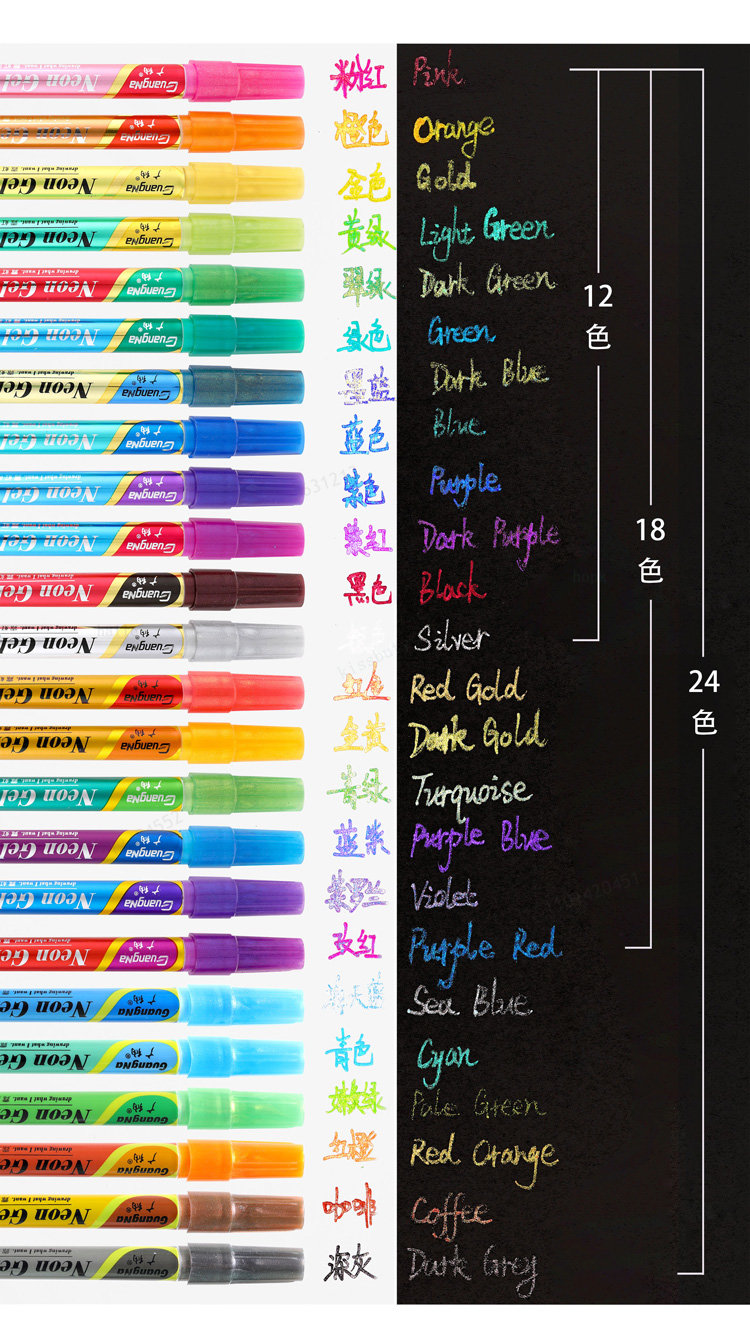 粉红 Pink
橙色 Orange
金色 Gold
黄绿 Light Green
翠绿 Dark Green
12
色
绿色 Green
墨蓝 Dark Blue
蓝色 Blue
紫色 Purple
紫红 Dark Purple
18
色
黑色 Black
银色 Silver
红金 Red Gold
24
色
金黄 Dark Gold
青绿 Turquoise
蓝紫 Purple Blue
紫罗兰 Violet
玫红 Purple Red
海天蓝 Sea Blue
青色 Cyan
嫩绿 Pale Green
红橙 Red Orange
咖啡 Coffee
深灰 Dark Grey
Neon Gel
drawing what I want.
广纳®
GuangNa